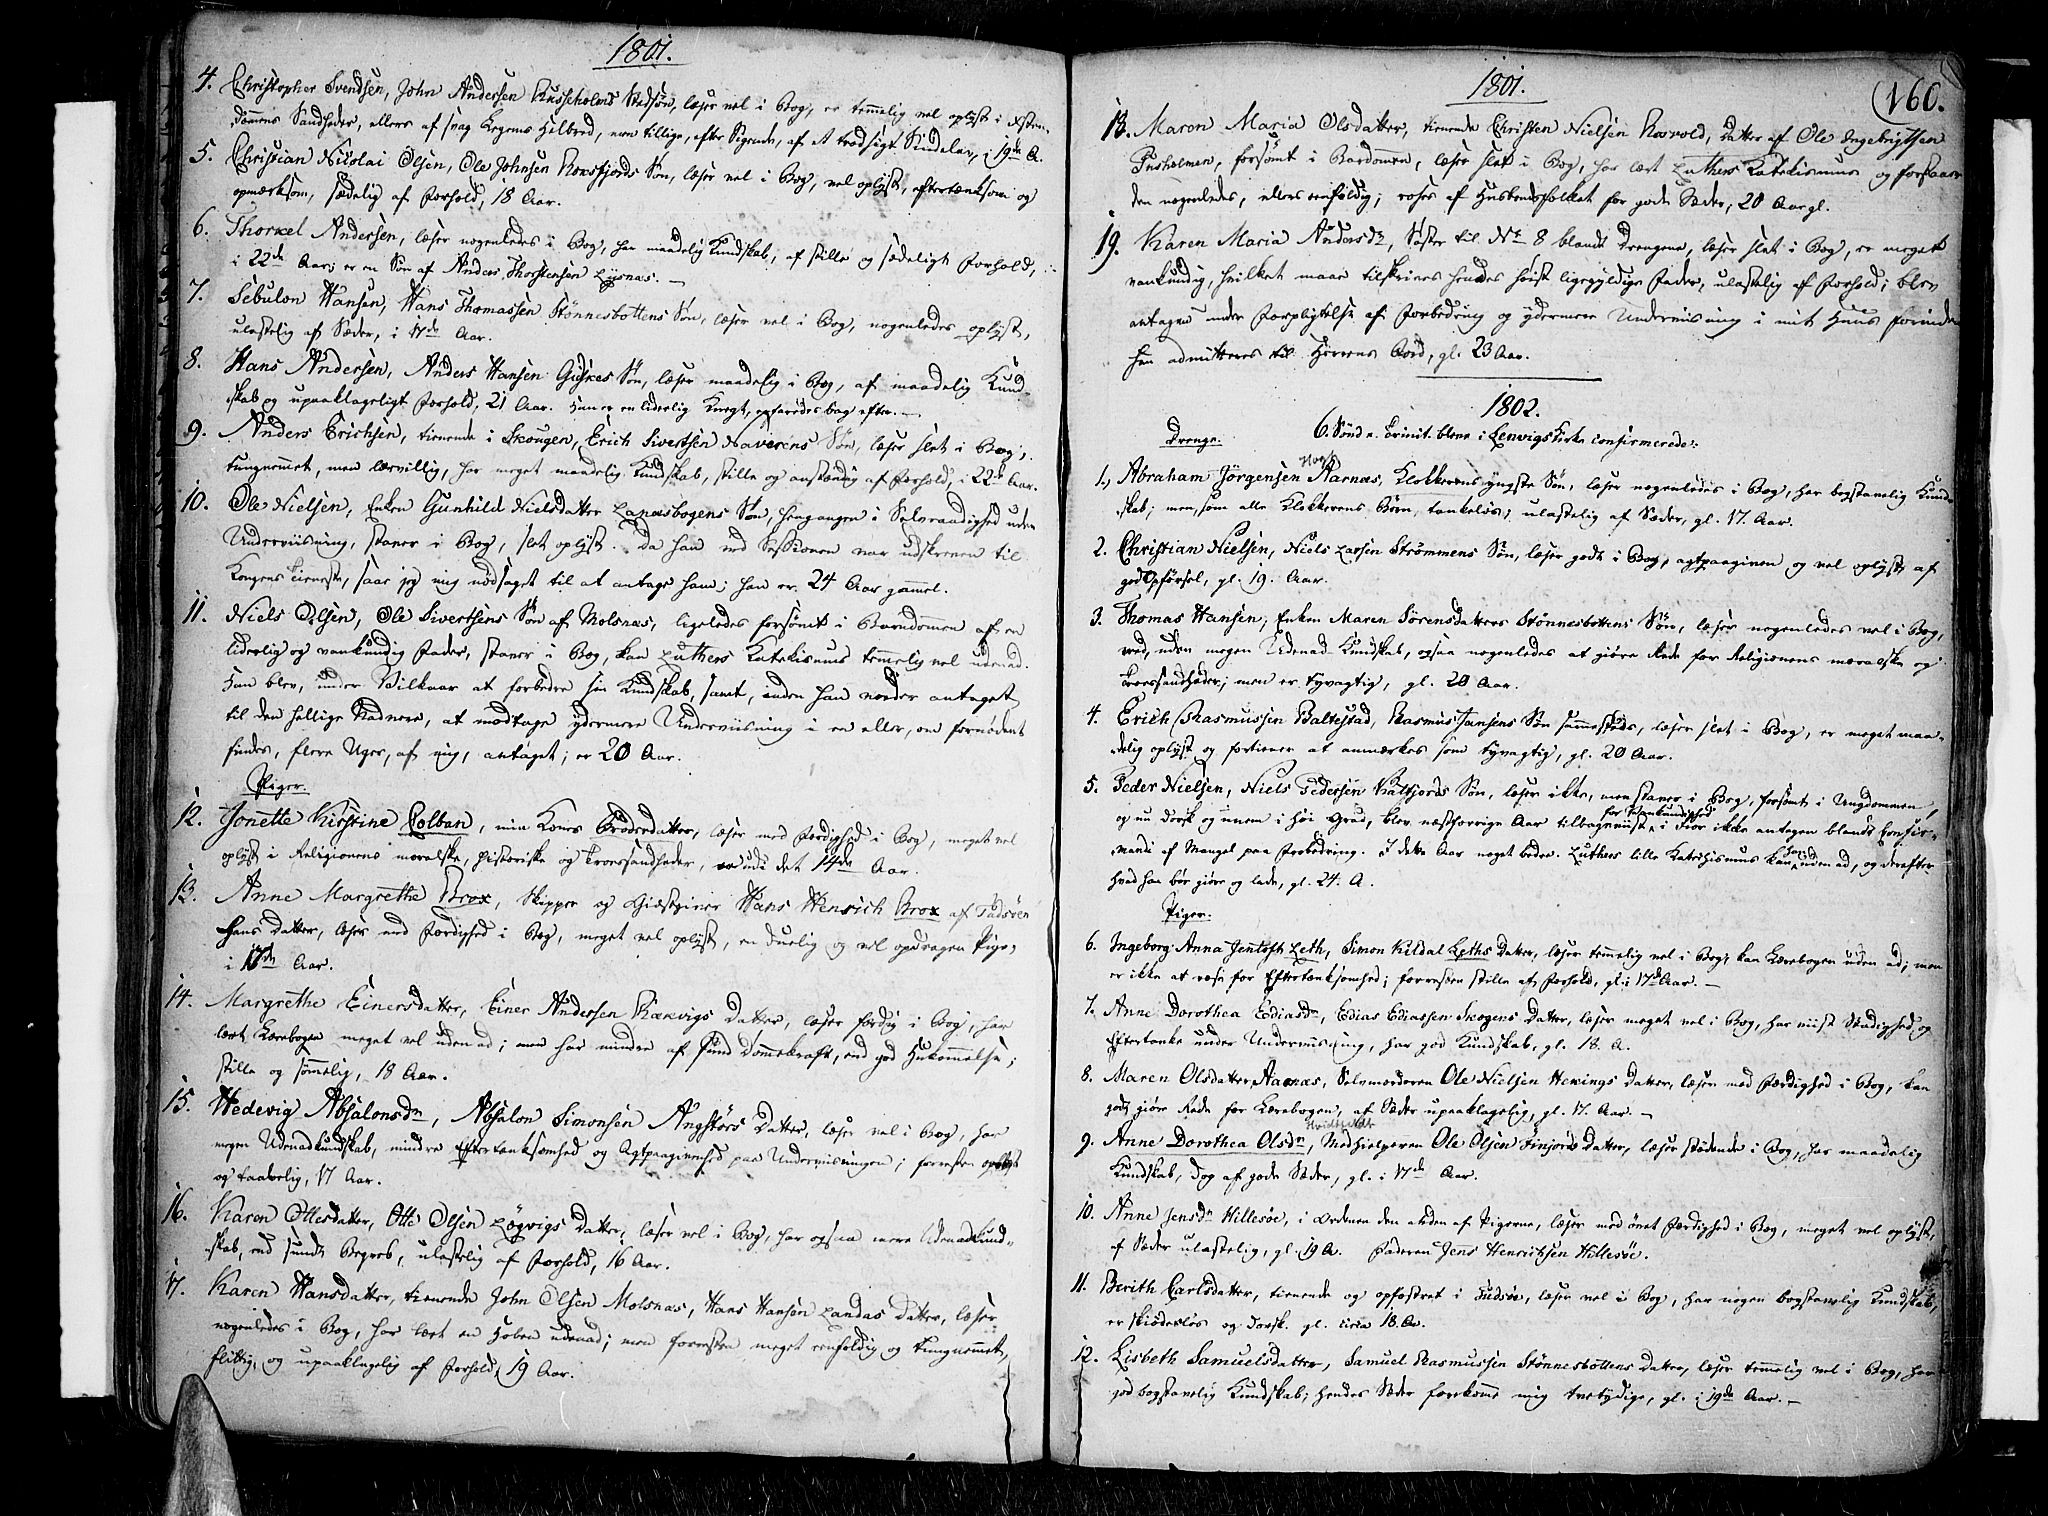 1801.
4. Christopher Svendsen, John Andersen Russeholms Stedsøn, læser vel i Bog, er temmelig vel oplyst i Xsten-
dommens Sandheder, ellers af svag Legems Helbred, men tillige, efter Sigende, af et trodsigt Sindelav, i 19de A.
5. Christian Nicolai Olsen, Ole Johnsen Roxfjords Søn, læser vel i Bog, vel oplyst, eftertænksom og
opmærksom, sædelig af Forhold, 18 Aar.
6. Thorkel Andersen, læser nogenledes i Bog, har maadelig Kundskab, af stille og sædeligt Forhold,
i 22de Aar; er en Søn af Anders Thorstensen Lysnæs. —
7. Sebulon Hansen, Hans Thomassen Stønnesbottens Søn, læser vel i Bog, nogenledes oplyst,
ulastelig af Sæder, i 17de Aar.
8. Hans Andersen, Anders Hansen Giskes Søn, læser maadelig i Bog, af maadelig Kund-
skab og upaaklageligt Forhold, 21 Aar. Han er en liderlig Knegt, erfaredes bag efter. —
9. Anders Erichsen, tienende i Skougen, Erich Sivertsen Naverens Søn, læser slet i Bog,
tungnemmet, men lærvillig, har meget maadelig Kundskab, stille og anstændig af Forhold, i 22de Aar.
10. Ole Nielsen, Enken Gunhild Nielsdatter Lanæsbogens Søn, hengangen i Selvraadighed uden
Underviisning, staver i Bog, slet oplyst. Da han ved Sessionen var udskreven til
Kongens tieneste, saae jeg mig nødsaget til at antage ham; han er 24 Aar gammel.
11. Niels Olsen, Ole Sivertsens Søn af Molsnæs, ligeledes forsømt i Barndommen af en
liderlig og vankundig Fader, staver i Bog, kan Luthers Katekismus temmelig vel udenad.
Han blev, under Vilkaar at forbedre sin Kundskab, samt, inden han vorder antaget
til den hellige Nadvere, at modtage ydermere Underviisning i en eller, om fornødent
findes, flere Uger, af mig, antaget; er 20 Aar.
Piger.
12. Jonette Kirstine Colban, min Kones Brodredatter, læser med Færdighed i Bog, meget vel
oplyst i Religionens moralske, historiske og troessandheder, endnu i det 14de Aar.
13. Anne Margrethe Brox, Skipper og Giæstgiver Hans Henrich Brox af Tudsøen
hans Datter, læser med Færdighed i Bog, meget vel oplyst, en duelig og vel opdragen Pige,
i 17de Aar.
14. Margrethe Einersdatter, Einer Andersen Kærvigs Datter, læser færdig i Bog, har
lært Lærebogen meget vel udenad; men har mindre af sund Dommekraft, end god Hukommelse;
stille og sømmelig, 18 Aar.
15. Hedevig Absalonsdn, Absalon Simonsen Angstørs Datter, læser vel i Bog, har
megen Udenadkundskab, mindre Eftertænksomhed og Agtpaagivenhed paa Underviisningen; forresten oplyst
og taalelig, 17 Aar.
16. Karen Ottesdatter, Otte Olsen Løgvigs Datter, læser vel i Bog, har ogsaa mere Udenadkund-
skab, end sundt Begreb, ulastelig af Forhold, 16 Aar.
17. Karen Hansdatter, tienende John Olsen Molsnæs, Hans Hansen Landas Datter, læser
nogenledes i Bog, har lært en Hoben udenad; men forresten meget eenfoldig og tungnemmet,
flittig, og upaaklagelig af Forhold, 19 Aar.
1801.
160.
18. Maren Maria Olsdatter, tienende Christen Nielsen Rørvold, Datter af Ole Ingebrigtsen
Finsholmen, forsømt i Bardommen, læser slet i Bog, har lært Luthers Katekismus og forstaaer
den nogenledes, ellers eenfoldig; roses af Husbondsfolket for gode Sæder, 20 Aar gl.
19. Karen Maria Andersdn, Søster til No 8 blandt Drengene, læser slet i Bog, er meget
vankundig, hvilket maae tilskrives hendes høist ligegyldige Fader, ulastelig af Forhold; blev
antagen under Forpligtelse af Forbedring og ydermere Underviisning i mit Huus forinden
hun admitteres til Herrens Bord, gl. 23 Aar.
1802.
6. Sønd. e. Trinit. bleve i Lenvigs Kirke confirmerede:
Drenge.
1., Abraham Jörgensen Hogh Aarnæs, Klokkerens yngste Søn, læser nogenledes i Bog, har bogstavelig Kund-
skab; men, som alle Klokkerens Børn, tankeløs; ulastelig af Sæder, gl. 17. Aar.
2. Christian Nielsen, Niels Larsen Strømmens Søn, læser godt i Bog, agtpaagiven og vel oplyst af
god Opførsel, gl. 19. Aar.
3. Thomas Hansen, Enken Maren Sørensdatters Stønnesbottens Søn, læser nogenledes vel i Bog,
veed, uden megen Udenad Kundskab, ogsaa nogenledes at giøre Rede for Religionens moralske og
troessandheder; men er tyvagtig, gl. 20 Aar.
4. Erich Rasmussen Baltestad, Rasmus Jansens Søn sammesteds, læser slet i Bog, er meget maa-
delig oplyst og fortiener at anmærkes som tyvagtig, gl. 20 Aar.
5. Peder Nielsen, Niels Pedersen Kalfjords Søn, læser ikke, men staver i Bog, forsømt i Ungdommen,
og nu dorsk og uvern i høi Grad, blev næstforrige Aar tilbageviist for Vankundighed, i Fior ikke antagen blandt Confir-
mandi af Mangel paa Forbedring. I dette Aar noget bedre. Luthers lille Katechismus kan han uden ad, og derefter
hvad han bør giøre og lade, gl. 24. A.
Piger.
6. Ingeborg Anna Jentoft Leth, Simon Kildal Leths Datter, læser temmelig vel i Bog, kan Lærebogen uden ad; men
er ikke at rose for Eftertænksomhed; forresten stille af Forhold, gl. i 17de Aar. —
7. Anne Dorothea Ediasdn, Edias Ediassen Skogens Datter, læser meget vel i Bog, har viist Stadighed og
Eftertanke under Underviisning, har god Kundskab, gl. 18. A.
8. Maren Olsdatter Aarnæs, Selvmorderen Ole Nielsen Hexings Datter, læser med Færdighed i Bog, kan
godt giøre Rede for Lærebogen, af Sæder upaaklagelig, gl. 17. Aar. —
9. Anne Dorothea Olsdn, Medhielperen Ole Olsen Finjords Datter, læser stødende i Bog, har maadelig
Kundskab, dog af gode Sæder, gl. i 17de Aar.
10. Anne Jensdn Hillesøe, i Ordenen den anden af Pigerne, læser med ønsket Færdighed i Bog, meget vel oplyst,
af Sæder ulastelig, gl. 19 A. Faderen Jens Henrichsen Hillesøe.
11. Berith Carlsdatter, tienende og opfostret i Tudsøe, læser vel i Bog, har nogen bogstavelig Kundskab,
er skiødesløs og dorsk. gl. circa 18. Aar.
12. Lisbeth Samuelsdatter, Samuel Rasmussen Stønnesbottens Datter, læser temmelig vel i Bog, har
god bogstavelig Kundskab; hendes Sæder forekomme mig tvetydige, gl. i 19de Aar. —